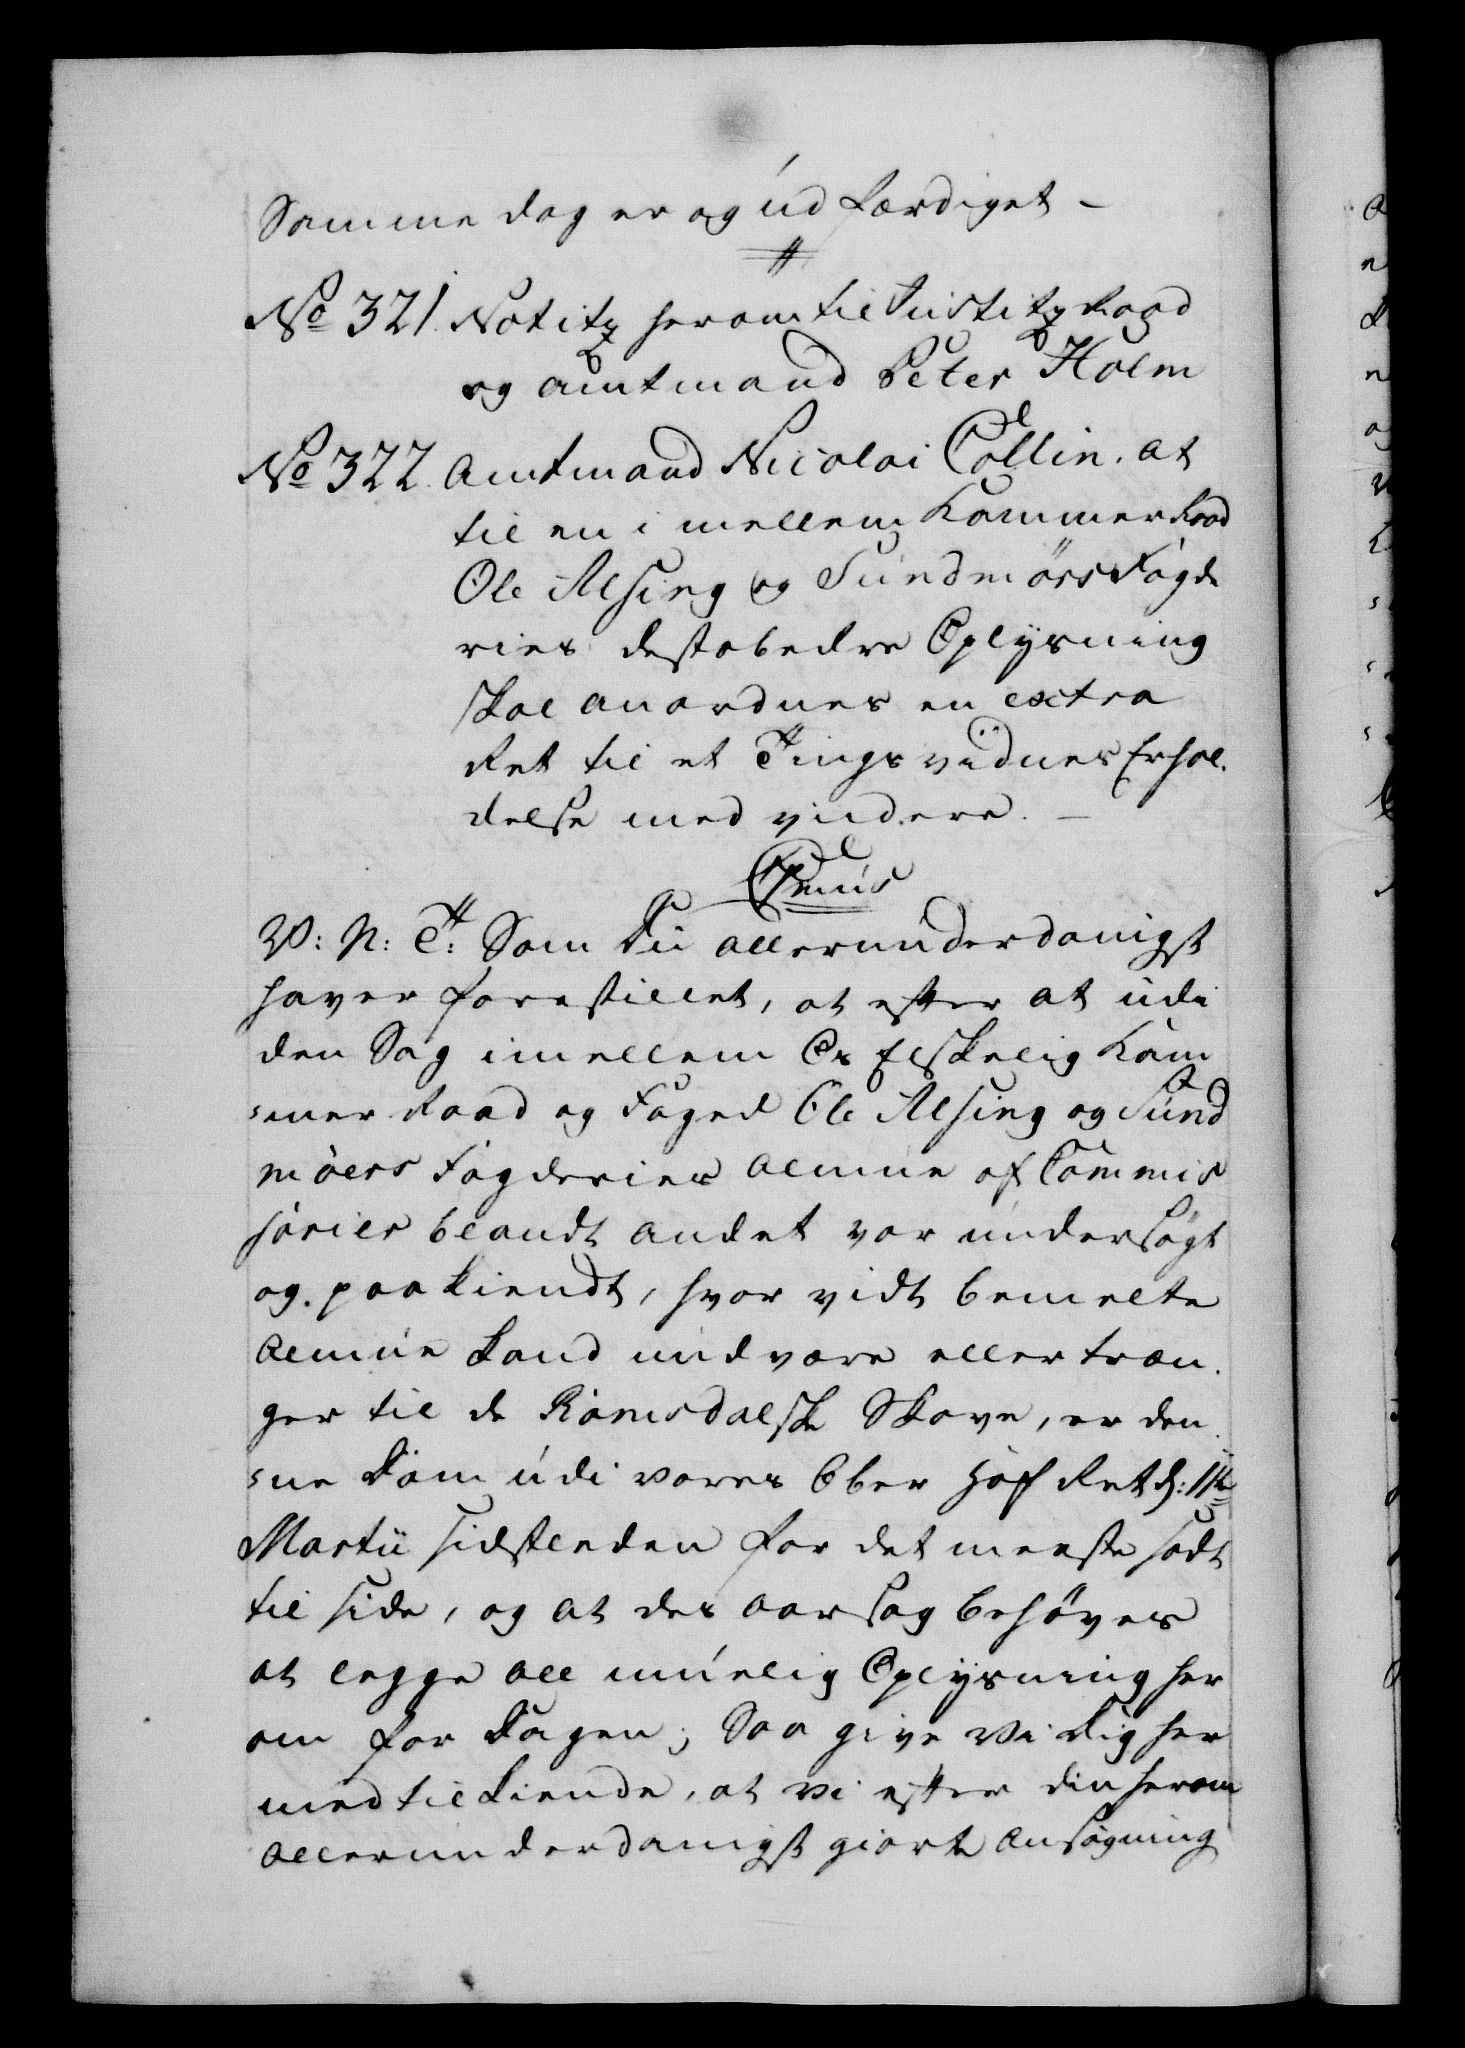 Samme dag er og udfærdiget -
No 321. Notitz herom til Justitz Raad
og Amtmand Peter Holm
No 322. Amtmand Nicolai Collin. at
til en i mellem Kammer Raad
Ole Alsing og Sundmørs Fogde
ries desto bedre Oplysning
skal anordnes en extra
Ret til et Tings vidnes Erhol.
delse med videre. -
V: N: T: Som Du allerunderdanigst
haver forestillet, at efter at udi
den Sag imellem Os Elskelig Kam
mer Raad og Foged Ole Alsing og Sund
møers Fogderies Almue af Commis
sarier blandt andet var undersøgt
og paakiendt, hvor vidt bemelte
Almue kand undvære eller træn.
ger til de Romsdalske Skove, er den
ne Dom udi vores Ober Hof Ret d: 11te
Martii sidstleden for det meeste sadt
til side, og at der aarsag behøves
at legge all muelig Oplysning her
om for Dagen; Saa give Vi Dig her
med tilkiende, at Vi efter din herom
allerunderdanigst giorte Ansøgning